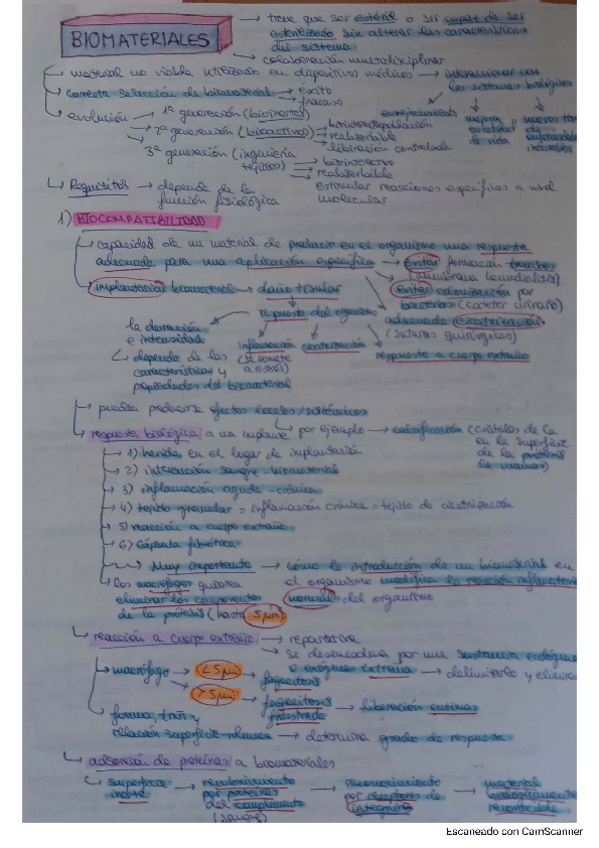 BIOMATERIALES
→ tiene que ser estéril o ser capaz de ser
esterilizado sin alterar las características
del sistema
→ colaboración multidisciplinar
→ material no viable utilizado en dispositivos médicos → interaccionar con
los sistemas biológicos
→ correcta selección de biomaterial → éxito
→ fracaso
envejecimiento
mejora en calidad de vida
→ evolución → 1ª generación (bioinertes)
→ 2ª generación (bioactivos) →
→ reabsorbible
→ liberación controlada
3ª generación (ingeniería tejidos) → biointeractivo
→ reabsorbible
estimular reacciones específicas a nivel
molecular
→ Requisitos → depende de la
función fisiológica
1) BIOCOMPATIBILIDAD
→ capacidad de un material de producir en el organismo una respuesta
adecuada para una aplicación específica → evitar formación trombos
(membrana hemodiálisis)
implantación biomaterial → daño tisular
evitar colonización por
bacterias (catéter urinario)
respuesta del organismo
adecuada cicatrización
(suturas quirúrgicas)
la duración
e intensidad
inflamación
cicatrización
respuesta a cuerpo extraño
→ depende de las
características y
propiedades del biomaterial
→ pueden producirse efectos locales/sistémicos
→ respuesta biológica a un implante
→ por ejemplo → calcificación (cristales de Ca
en la superficie
de la prótesis
de mamas)
→ 1) herida en el lugar de implantación
→ 2) interacción sangre-biomaterial
→ 3) inflamación aguda-crónica
→ 4) tejido granular = inflamación crónica = tejido de cicatrización
→ 5) reacción a cuerpo extraño
→ 6) Cápsula fibrótica
→ Muy importante → cómo la introducción de un biomaterial en
el organismo modifica la reacción inflamatoria
normal del organismo
→ los macrófagos quieren
eliminar los componentes
de la prótesis (hasta 5 µm)
→ reacción a cuerpo extraño → reparativa
→ se desencadena por una sustancia endógena
o exógena extraña → delimitarlo y eliminar
→ macrófago → < 5 µm → fagocitosis
→ > 5 µm → fagocitosis
frustrada → liberación
→ forma, tañ y
relación superficie-volumen → determina grado de respuesta
→ adsorción de proteínas a biomateriales
→ superficie
inerte → recubrimiento
por proteínas
del complemento
(sangre) → reconocimiento
por receptores de
integrina → material
biológicamente
reconocible
Escaneado con CamScanner